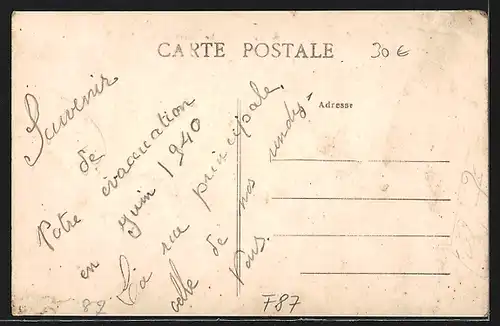 CARTE POSTALE
30 €
Adresse
Souvenir
de
Votre évacuation
en Juin 1940
La rue principale,
celle de nos rendez'
Vous.
87
F87